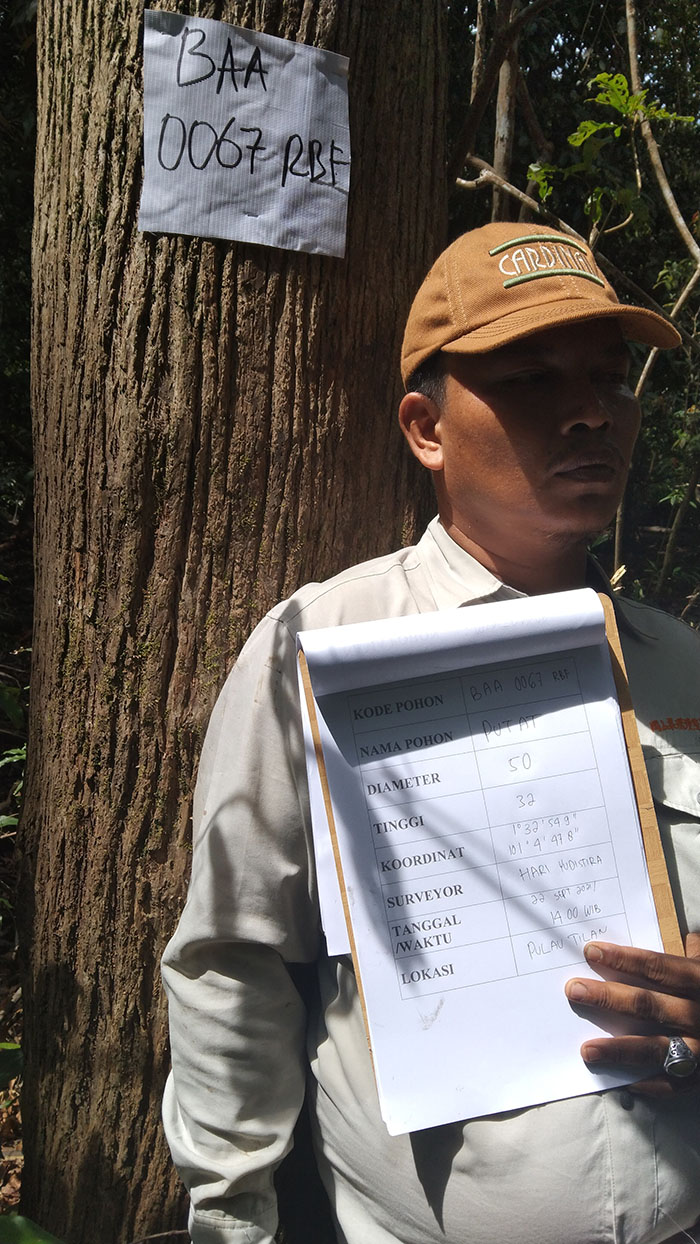 BAA
0067 RBF
CARDINAL
KODE POHON BAA 0067 RBF
NAMA POHON PUTAT
DIAMETER 50
TINGGI 32
KOORDINAT 1°32'54.9"
101°4'47.8"
SURVEYOR HARI YUDISTIRA
TANGGAL 22 SEPT 2021/
/WAKTU 14.00 WIB
LOKASI PULAU TILAN